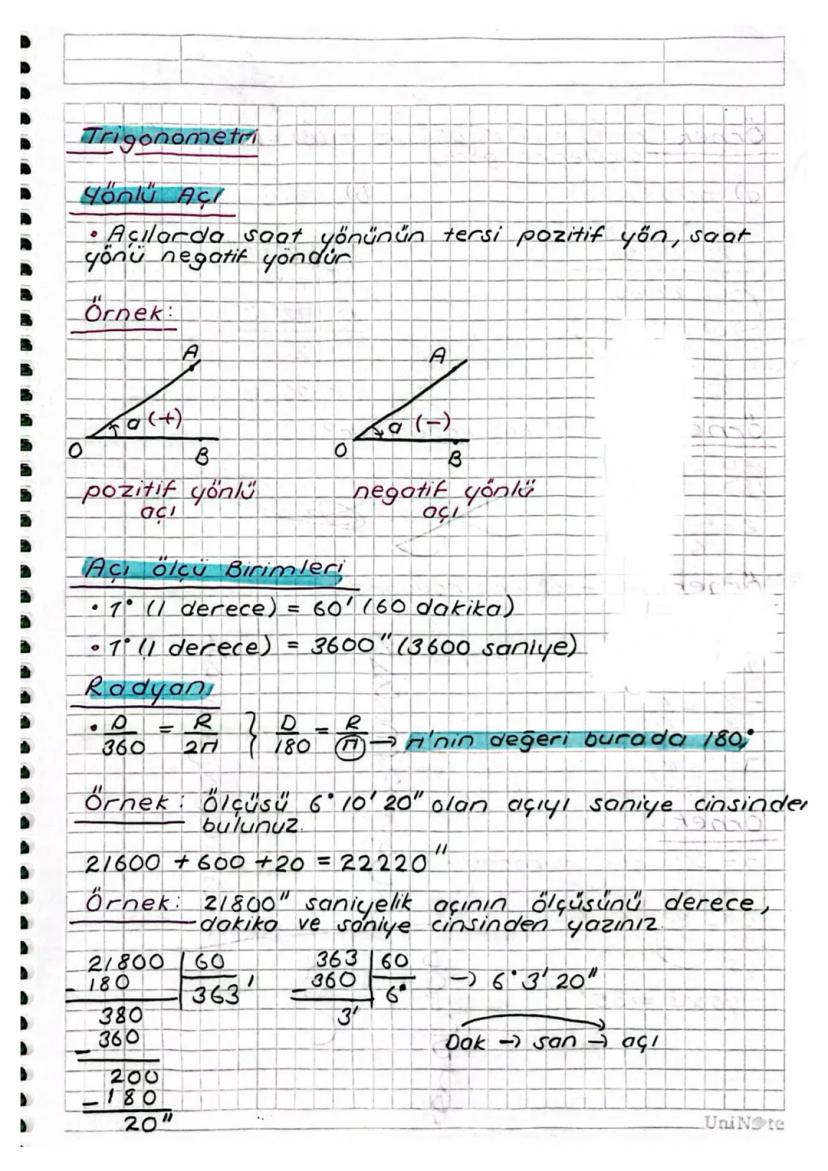 Trigonometri
Yönlü Açı
• Açılarda saat yönünün tersi pozitif yön, saat
yönü negatif yöndür
Örnek:
A A
a (+) a (-)
O B O B
pozitif yönlü negatif yönlü
açı açı
Açı ölçü Birimleri
• 1° (1 derece) = 60' (60 dakika)
• 1° (1 derece) = 3600" (3600 saniye)
Radyan
• D/360 = R/2π } D/180 = R/π → π'nin değeri burada 180°
Örnek: Ölçüsü 6° 10' 20" olan açıyı saniye cinsinden
bulunuz.
21600 + 600 + 20 = 22220"
Örnek: 21800" saniyelik açının ölçüsünü derece,
dakika ve saniye cinsinden yazınız.
21800 | 60 363 | 60
- 180 363' - 360 6° → 6° 3' 20"
380 3'
- 360 Dak → san → açı
200
- 180
20"
UniNote